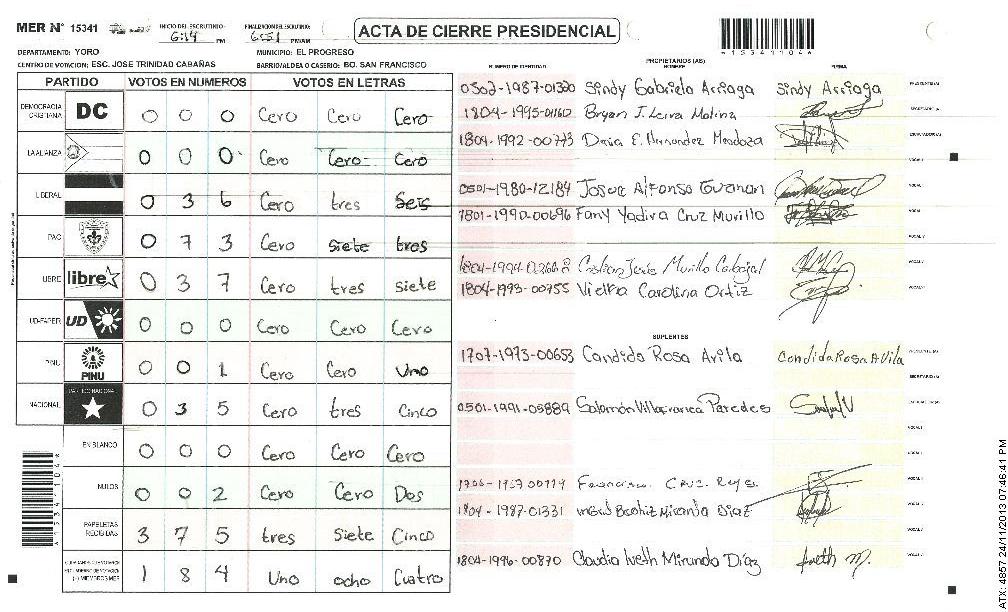 MER Nº 15341 INICIO DEL ESCRUTINIO: 6:14 PM FINALIZACION DEL ESCRUTINIO: 6:51 PM/AM
ACTA DE CIERRE PRESIDENCIAL
DEPARTAMENTO: YORO MUNICIPIO: EL PROGRESO
CENTRO DE VOTACION: ESC. JOSE TRINIDAD CABAÑAS BARRIO/ALDEA O CASERIO: BO. SAN FRANCISCO
PARTIDO VOTOS EN NUMEROS VOTOS EN LETRAS
DEMOCRACIA CRISTIANA DC 0 0 0 Cero Cero Cero
LA ALIANZA 0 0 0 Cero Cero Cero
LIBERAL 0 3 6 Cero tres Seis
PAC 0 7 3 Cero siete tres
LIBRE libre 0 3 7 Cero tres siete
UD-FAPER UD 0 0 0 Cero Cero Cero
PINU PINU 0 0 1 Cero Cero Uno
NACIONAL 0 3 5 Cero tres Cinco
EN BLANCO 0 0 0 Cero Cero Cero
NULOS 0 0 2 Cero Cero Dos
PAPELETAS RECIBIDAS 3 7 5 tres Siete Cinco
1 8 4 Uno ocho Cuatro
PROPIETARIOS (AS)
NUMERO DE IDENTIDAD NOMBRE FIRMA
0502-1987-01320 Sindy Gabriela Arriaga Sindy Arriaga PRESIDENTE (A)
1804-1995-01160 Bryan J. Leiva Molina SECRETARIO (A)
1804-1992-00773 Dania E. Hernandez Mendoza ESCRUTADOR (A)
VOCAL I
0501-1980-12184 Josue Alfonso Guzman
1801-1990-00696 Fany Yadira Cruz Murillo
1804-1994-02668 Cristian Jesús Murillo Carbajal
1804-1993-00755 Vielka Carolina Ortiz
SUPLENTES
1707-1973-00653 Candida Rosa Avila Candida Rosa Avila PRESIDENTE (A)
SECRETARIO (A)
0501-1991-05889 Salomón Villafranca Paredes
Francisca Cruz Reyes
1804-1987-01331 Ingrid Beatriz Miranda Díaz
1804-1996-00870 Claudia Iveth Miranda Díaz Iveth M.
ATX: 4857 24/11/2013 07:46:41 PM